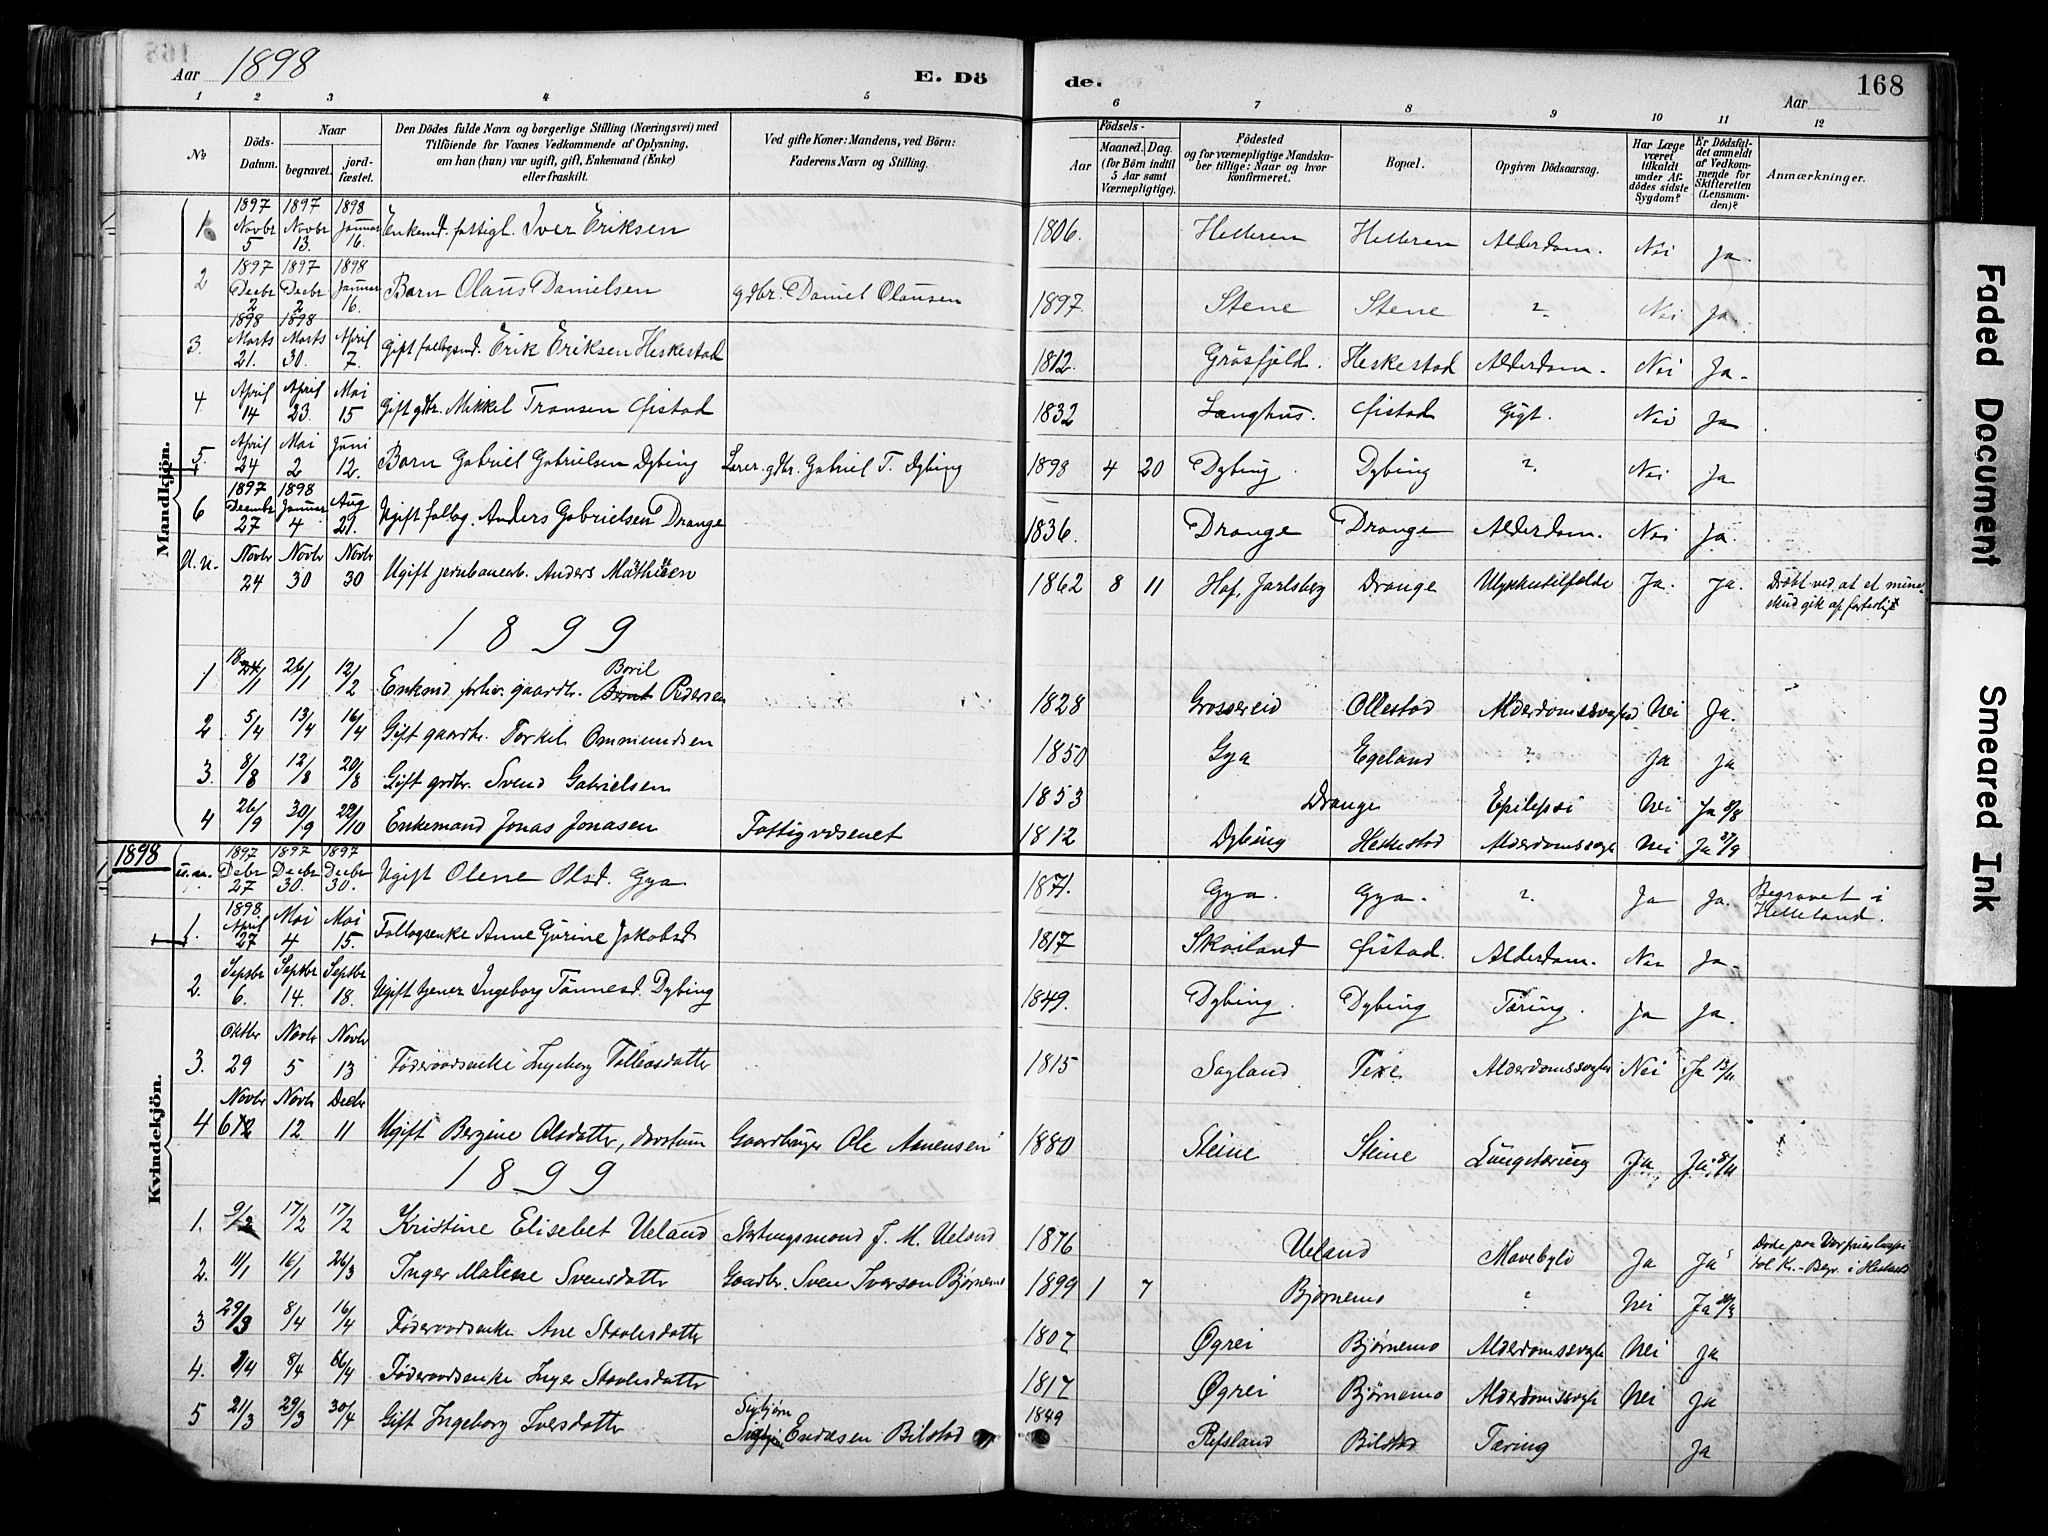 Aar 1898 E. Dö de. Aar 168
1 2 3 4 5 6 7 8 9 10 11 12
No
Döds-Datum.
Naar
begravet.
jord-fæstet.
Den Dödes fulde Navn og borgerlige Stilling (Næringsvei) med
Tilföiende for Voxnes Vedkommende af Oplysning,
om han (hun) var ugift, gift, Enkemand (Enke)
eller fraskilt.
Ved gifte Koner: Mandens, ved Börn:
Faderens Navn og Stilling.
Födsels-
Aar
Maaned. Dag.
(for Börn indtil
5 Aar samt
Værnepligtige).
Födested
og for værnepligtige Mandska-
ber tillige: Naar og hvor
konfirmeret.
Bopæl.
Opgiven Dödsaarsag.
Har Læge
været
tilkaldt
under Af-
dödes sidste
Sygdom?
Er Dödsfal-
det anmeldt
af Vedkom-
mende for
Skifteretten
(Lensman-
den)?
Anmærkninger.
Mandkjön.
1 1897 Novbr 5 1897 Novbr 13. 1898 Januar 16. Enkemd. fattigl. Iver Eriksen 1806. Helleren Helleren Alderdom. Nei Ja.
2 1897 Decbr 2 1897 Decbr 2 1898 Januar 16. Barn Olaus Danielsen gdbr. Daniel Olausen 1897 Stene Stene ? Nei Ja
3. 1898 Marts 21. 1898 Marts 30. April 7. Gift follogsmd. Erik Eriksen Heskestad 1812. Gråsfjeld. Heskestad Alderdom. Nei Ja.
4 April 14 April 23 Mai 15 Gift gdbr. Mikkel Tronsen Øistad 1832 Langhus. Øistad Gigt. Nei Ja
5. April 24 Mai 2 Juni 12. Barn Gabriel Gabrielsen Dybing Lærer. gdbr. Gabriel T. Dybing 1898 4 20 Dybing. Dybing ? Nei Ja
6 1897 Decmbr 27 1898 Januar 4 Aug 21. Ugift follog. Anders Gabrielsen Drange 1836. Drange Drange Alderdom. Nei Ja.
U. n. Novbr 24 Novbr 30 Novbr 30 Ugift jernbanearb. Anders Mathisen 1862 8 11 Hof, Jarlsberg Drange Ulykkestilfælde Ja. Ja. Dræbt ved at et mine-
skud gik af fortidlig
1899
1 18 24/1 26/1 12/2 Enkmd forhv. gaardbr. Boril Bernt Pedersen 1828 Grossereid Ollestad Alderdomssvaghed Nei Ja.
2 5/4 13/4 16/4 Gift gaardbr. Torkel Ommundsen 1850 Gya Egeland ? Ja Ja
3. 8/8 12/8 20/8 Gift grdbr. Svend Gabrielsen 1853 Drange Epilepsi Nei Ja 8/8
4 26/9 30/9 22/10 Enkemand Jonas Jonasen Fattigvæsenet 1812 Dybing Heskestad Alderdomssvagh Nei Ja 27/9
Kvindekjön.
1898
u. n. 1897 Debr 27 1897 Decbr 30. 1897 Decbr 30. Ugift Olene Olsd. Gya 1871. Gya. Gya. ? Ja Ja. Begravet i
Helleland.
1. 1898. April 27 Mai 4 Mai 15. Follogsenke Anne Gurine Jakobsd 1817 Skoiland Øistad. Alderdom. Nei Ja.
2. Septbr 6. Septbr 14. Septbr 18. Ugift tjener Ingeborg Tønnesd. Dybing 1849. Dybing. Dybing Tæring. Ja Ja.
3. Oktbr 29 Novbr 5 Novbr 13 Føderaadsenke Ingeborg Tollevsdatter 1815 Sagland Texe Alderdomssvaghed Nei Ja 13/11
4 Novbr 6 12 Novbr 12 Decbr 11 Ugift Bergine Olsdatter, døvstum Gaardbruger Ole Asmensen 1880 Steine Steine Lungetæring Ja, Ja, 8/11
1899
1. 9/2 17/2 17/2 Kristine Elisebet Ueland Stortingsmand J. M. Ueland 1876 Ueland Mavebyld Ja Ja
2. 11/1 16/1 26/3 Inger Maline Svensdatter Gaardbr. Sven Iverson Bjørnemo 1899 1 7 Bjørnemo ? Nei Ja 20/3
3 29/3 8/4 16/4 Føderaadsenke Ane Staalesdatter 1807 Øgrei Bjørnemo Alderdomssvagh Nei Ja
4. 1/4 8/4 16/4 Føderaadsenke Inger Staalesdatter 1817 Øgrei Bjørnemo Alderdomssvagh Nei Ja
5 21/3 29/3 30/4 Gift Ingeborg Iversdatter Sigbjørn Endresen Bilstad 1849 Refsland Bilstad Tæring Ja
Faded Document
Smeared Ink